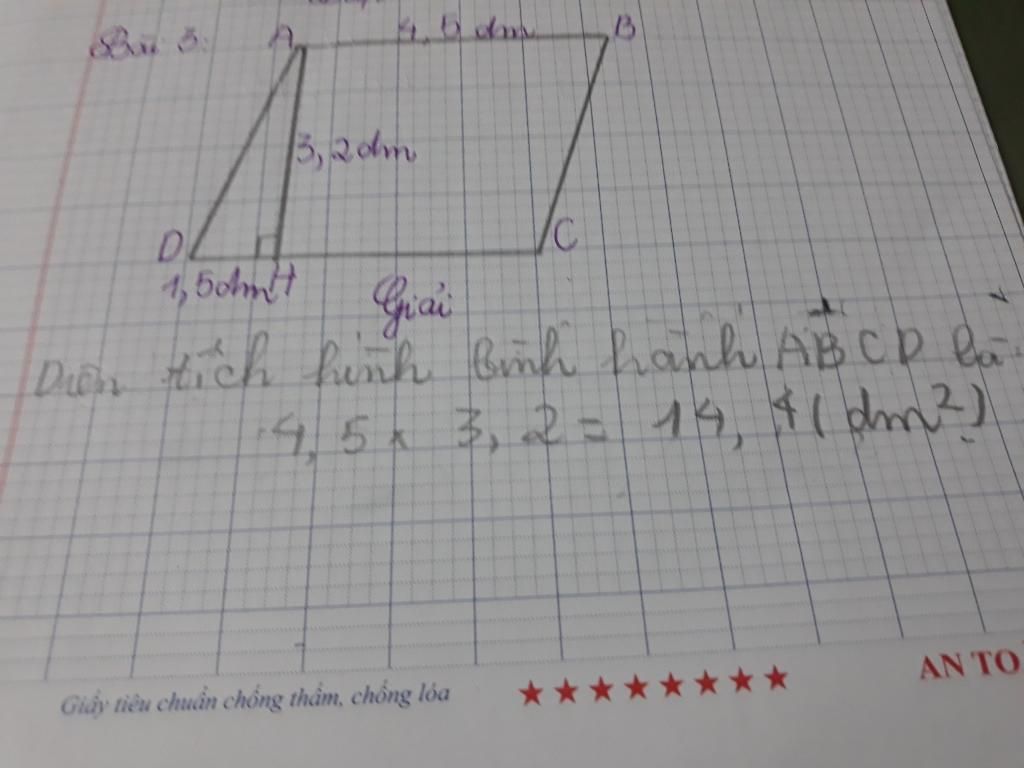 Bài 3:
A 4,5 dm B
3,2dm
D C
1,5dm H
Giải
Diện tích hình bình hành ABCD là:
4,5 x 3,2 = 14,4 (dm²)
Giấy tiêu chuẩn chống thấm, chống lóa
AN TO